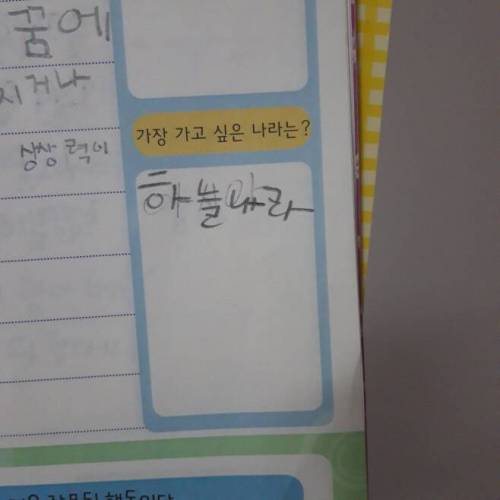 꿈에
시거나
상상력이
가장 가고 싶은 나라는?
하늘나라